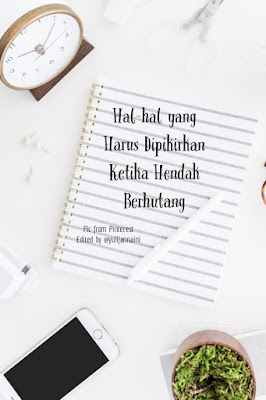 Hal-hal yang
Harus Dipikirkan
Ketika Hendak
Berhutang
Pic from Pinterest
Edited by @yulijannaini